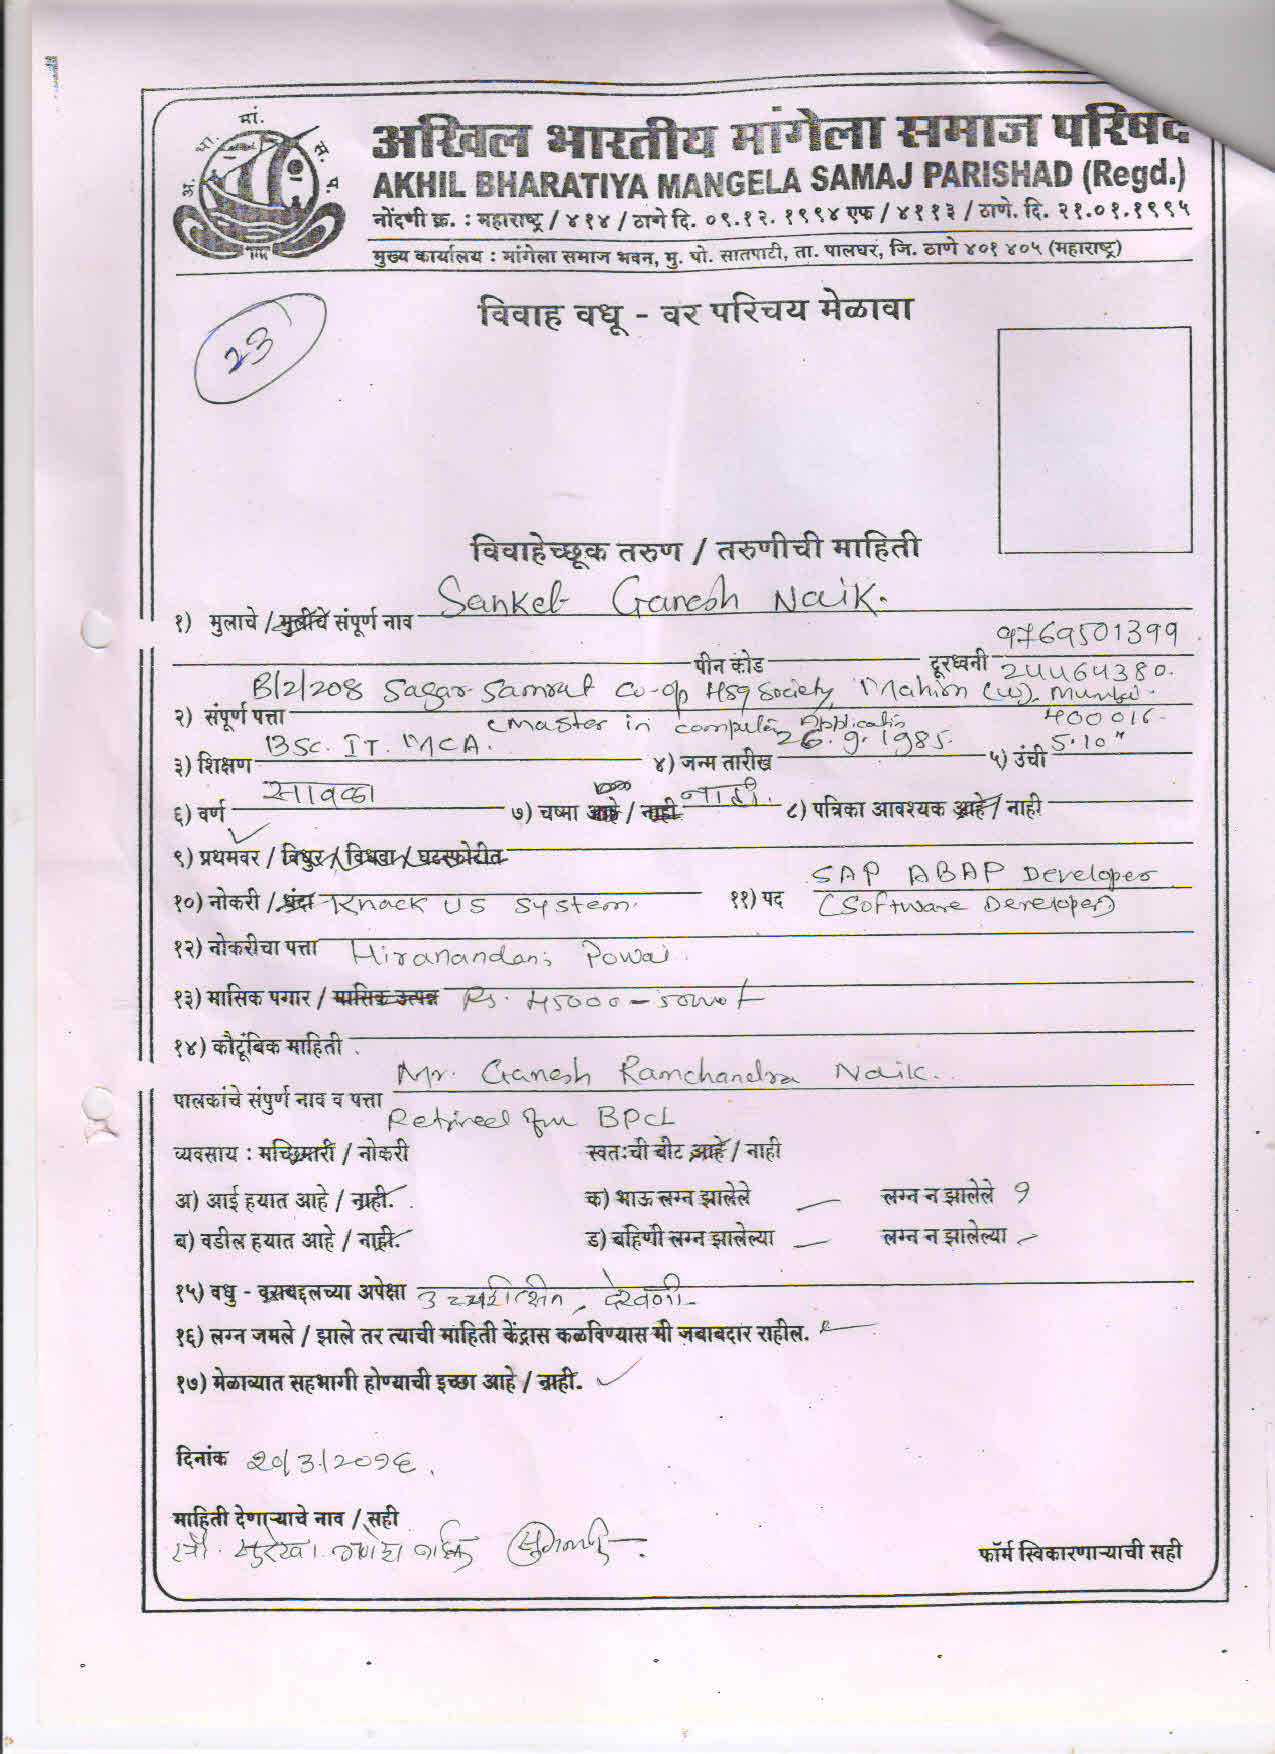 अ. भा. मां. स. प.
अखिल भारतीय मांगेला समाज परिषद
AKHIL BHARATIYA MANGELA SAMAJ PARISHAD (Regd.)
नोंदणी क्र. : महाराष्ट्र / ४१४ / ठाणे दि. ०९.१२. १९९४ एफ / ४११३ / ठाणे. दि. २१.०१.१९९५
मुख्य कार्यालय : मांगेला समाज भवन, मु. पो. सातपाटी, ता. पालघर, जि. ठाणे ४०१ ४०५ (महाराष्ट्र)
विवाह वधू - वर परिचय मेळावा
23
विवाहेच्छूक तरुण / तरुणीची माहिती
१) मुलाचे / मुलीचे संपूर्ण नाव Sanket Ganesh Naik.
पीन कोड दूरध्वनी 9769501399
24464380.
B/2/208 Sagar Samrat Co-op Hsg Society, Mahim (W). Mumbai.
२) संपूर्ण पत्ता 400016
(Master in computer Application
३) शिक्षण BSc. IT. MCA. ४) जन्म तारीख 26.9.1985. ५) उंची 5.10"
६) वर्ण सावळा ७) चष्मा आहे / नाही नाही. ८) पत्रिका आवश्यक आहे / नाही
९) प्रथमवर / विधुर / विधवा / घटस्फोटीत
१०) नोकरी / धंदा Knack US System. ११) पद SAP ABAP Developer
(Software Developer)
१२) नोकरीचा पत्ता Hiranandani Powai.
१३) मासिक पगार / मासिक उत्पन्न Rs. 45000 - 50000/-
१४) कौटूंबिक माहिती
Mr. Ganesh Ramchandra Naik.
पालकांचे संपुर्ण नाव व पत्ता
Retired from BPCL
व्यवसाय : मच्छिमारी / नोकरी स्वतःची बोट आहे / नाही
अ) आई हयात आहे / नाही. क) भाऊ लग्न झालेले — लग्न न झालेले १
ब) वडील हयात आहे / नाही. ड) बहिणी लग्न झालेल्या — लग्न न झालेल्या —
१५) वधु - वराबद्दलच्या अपेक्षा उच्चशिक्षित, देखणी
१६) लग्न जमले / झाले तर त्याची माहिती केंद्रास कळविण्यास मी जबाबदार राहील.
१७) मेळाव्यात सहभागी होण्याची इच्छा आहे / नाही.
दिनांक २०/3/२०१६.
माहिती देणाऱ्याचे नाव / सही
सौ. सुरेखा गणेश नाईक
फॉर्म स्विकारणाऱ्याची सही